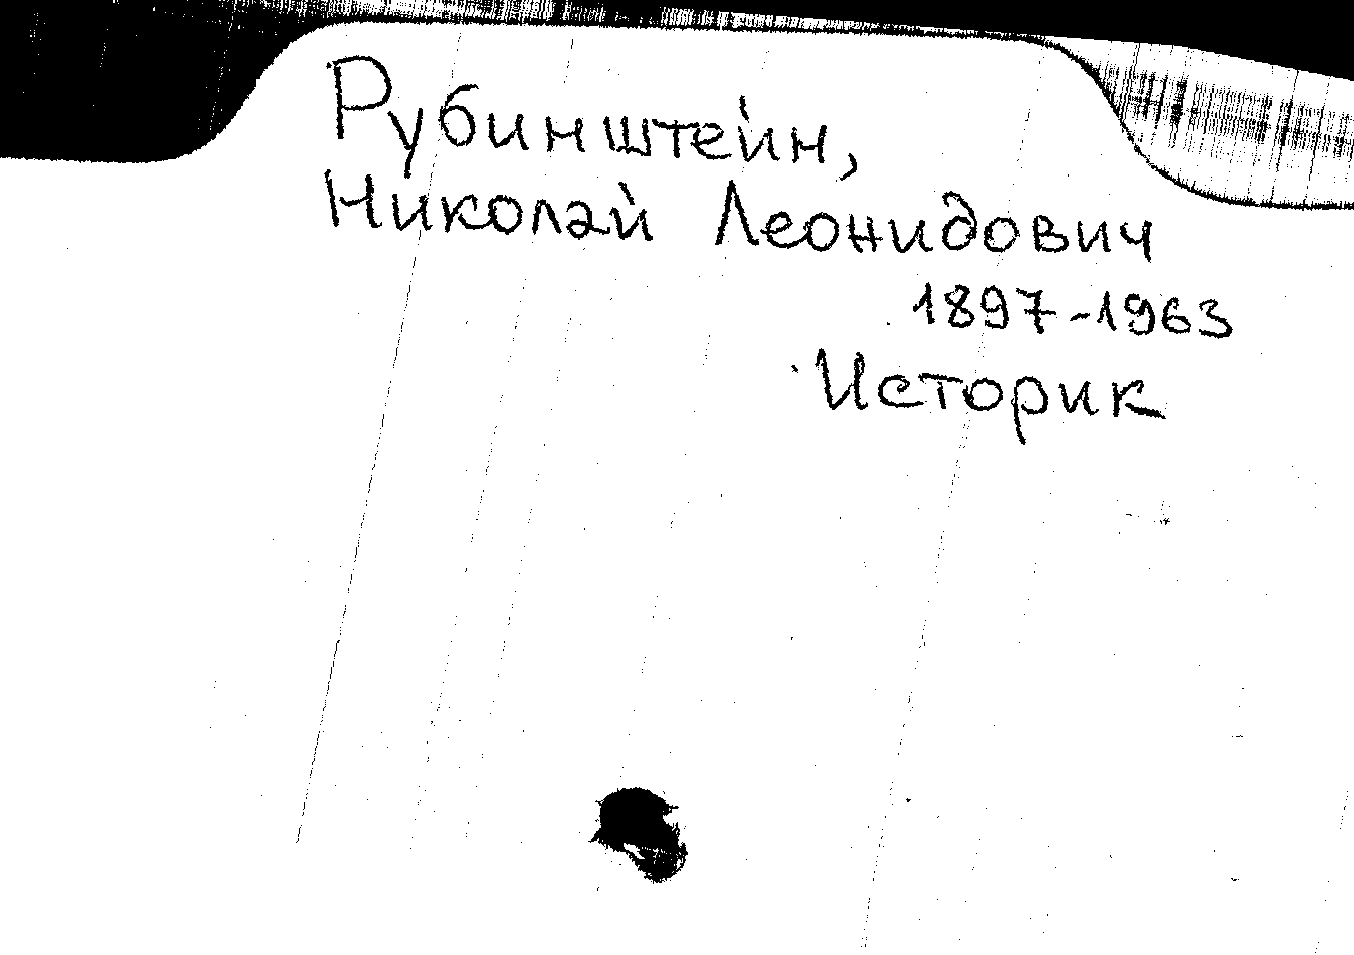 Рубинштейн,
Николай Леонидович
1897-1963
Историк